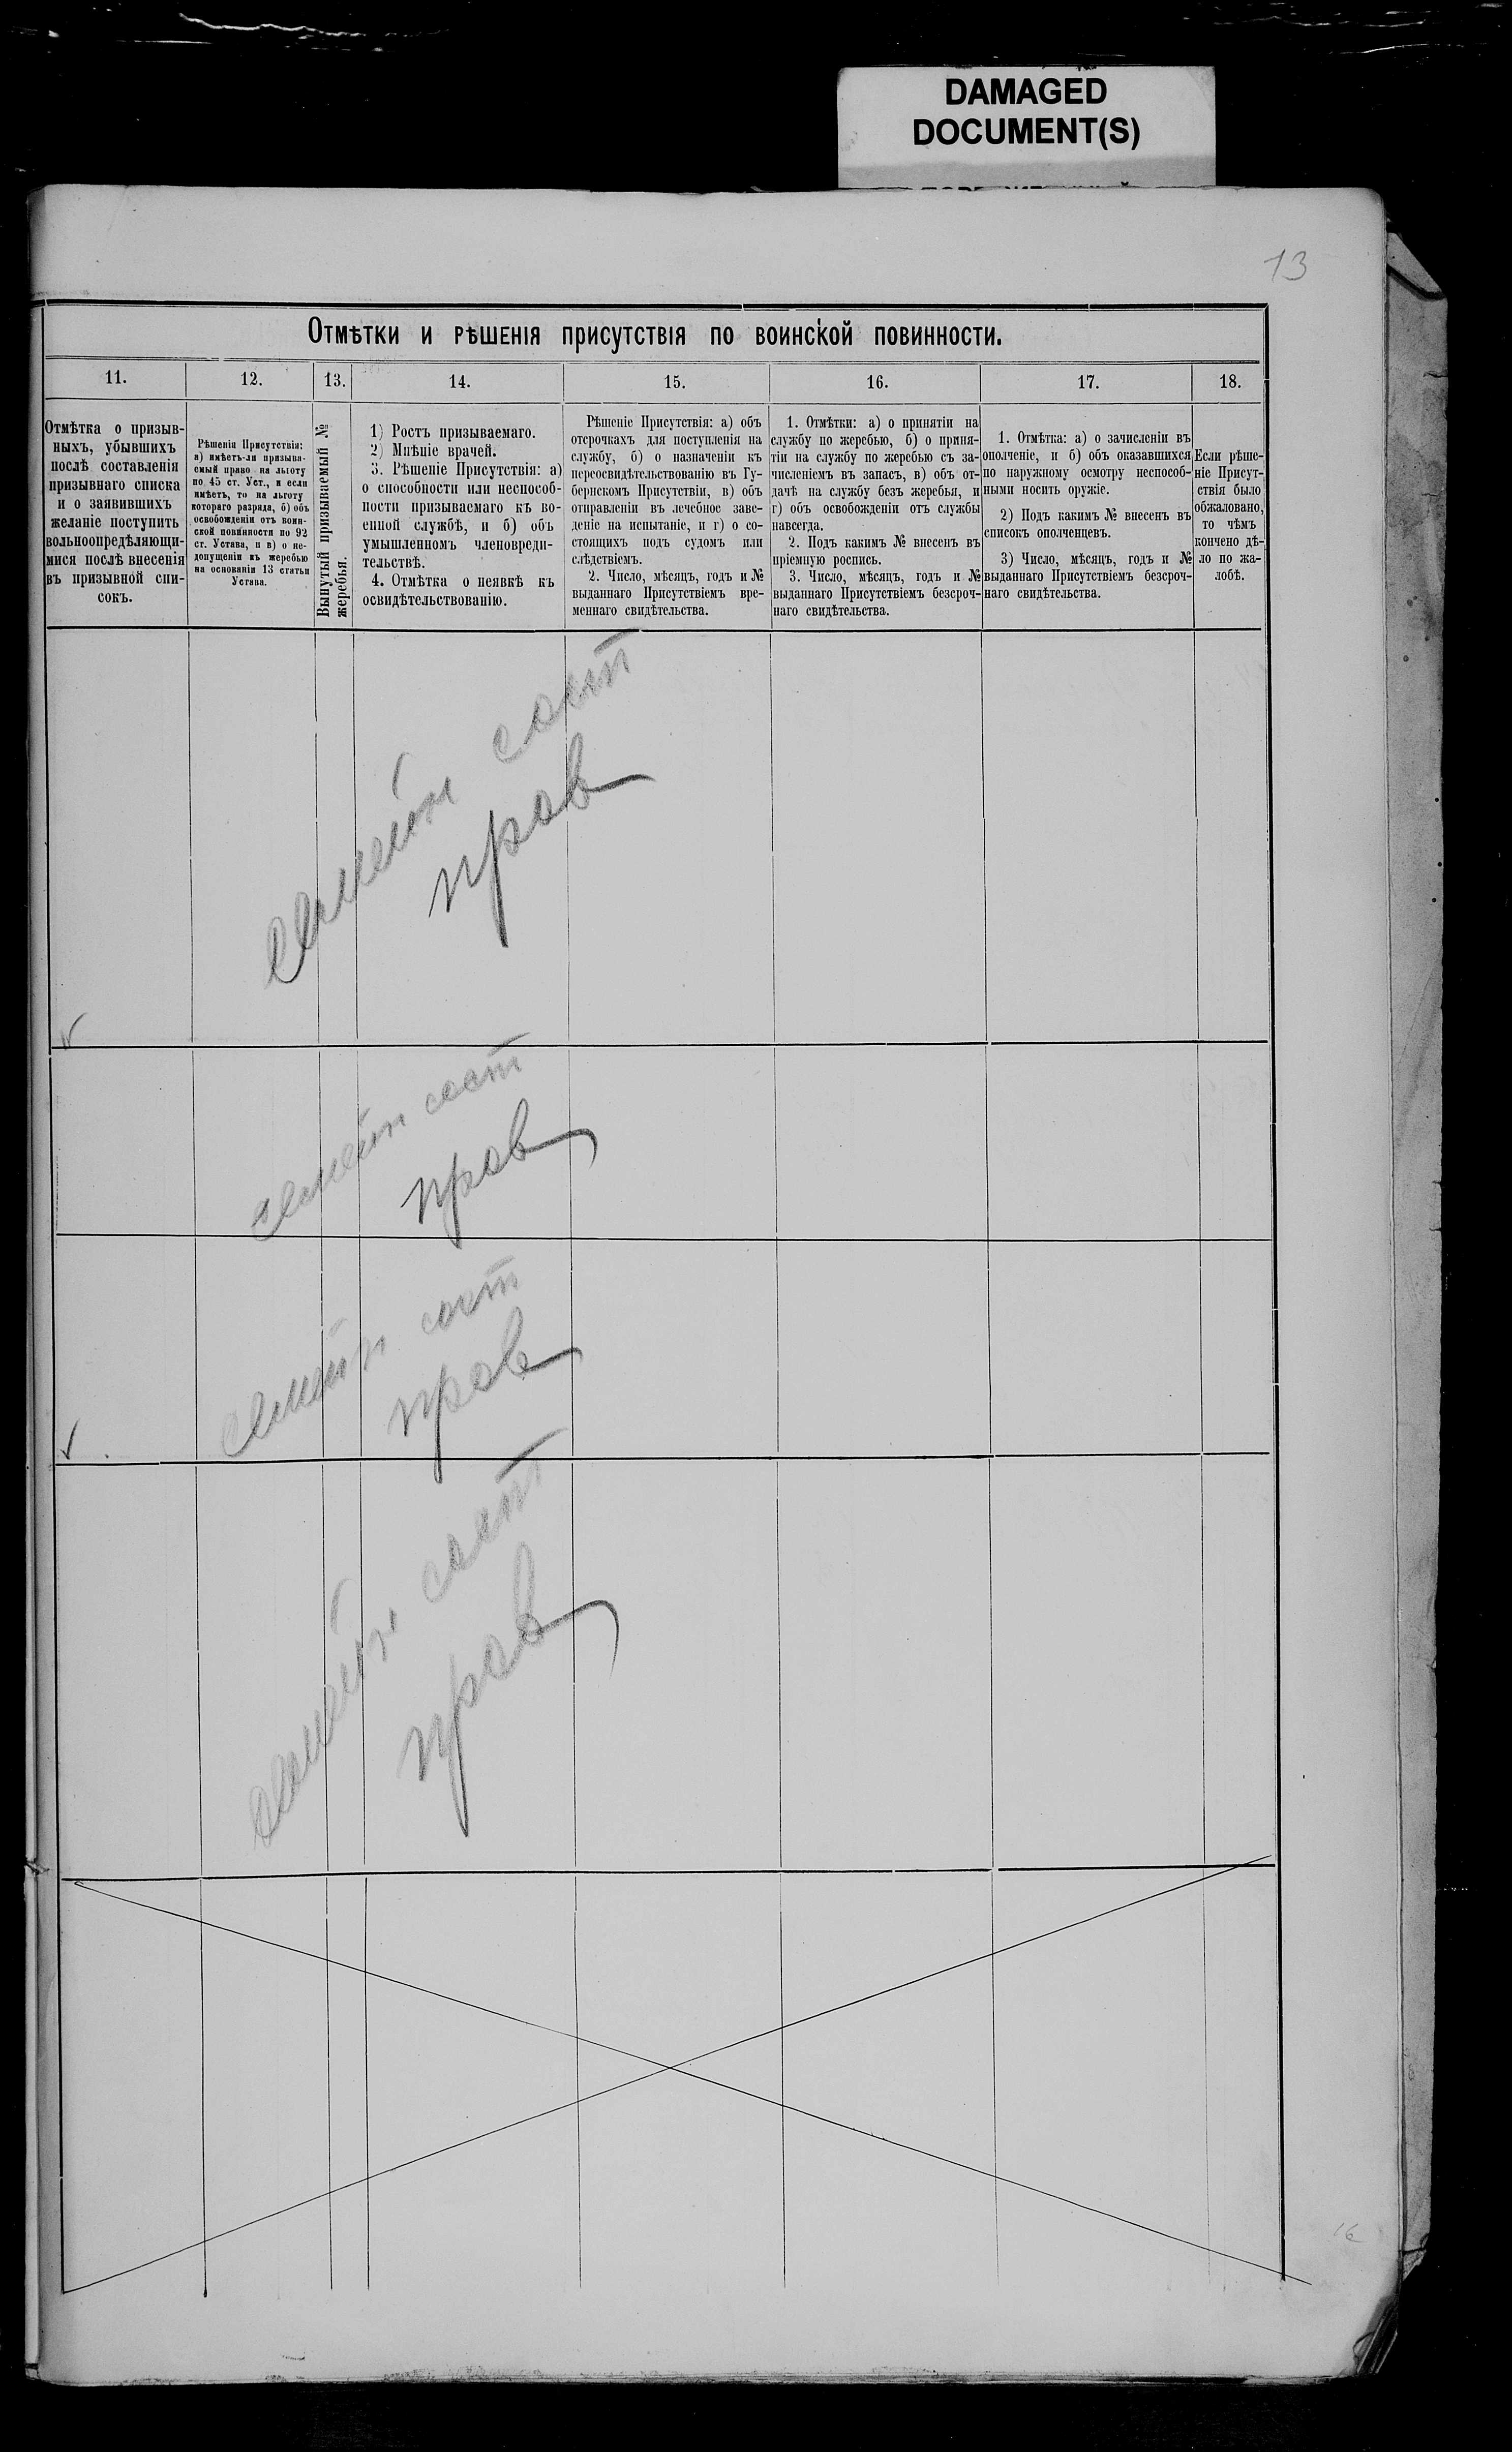 DAMAGED
DOCUMENT(S)
13
Отмѣтки и рѣшенія присутствія по воинской повинности.
11.
12.
13.
14.
15.
16.
17.
18.
Отмѣтка о призыв-
ныхъ, убывшихъ
послѣ составленія
призывнаго списка
и о заявившихъ
желаніе поступить
вольноопредѣляющи-
мися послѣ внесенія
въ призывной спи-
сокъ.
Рѣшенія Присутствія:
а) имѣетъ-ли призыва-
емый право на льготу
по 45 ст. Уст., и если
имѣетъ, то на льготу
котораго разряда, б) объ
освобожденіи отъ воин-
ской повинности по 92
ст. Устава, и в) о не-
допущеніи къ жеребью
на основаніи 13 статьи
Устава.
Вынутый призываемый №
жеребья.
1) Ростъ призываемаго.
2) Мнѣніе врачей.
3. Рѣшеніе Присутствія: а)
о способности или неспособ-
ности призываемаго къ во-
енной службѣ, и б) объ
умышленномъ членовреди-
тельствѣ.
4. Отмѣтка о неявкѣ къ
освидѣтельствованію.
Рѣшеніе Присутствія: а) объ
отсрочкахъ для поступленія на
службу, б) о назначеніи къ
переосвидѣтельствованію въ Гу-
бернскомъ Присутствіи, в) объ
отправленіи въ лечебное заве-
деніе на испытаніе, и г) о со-
стоящихъ подъ судомъ или
слѣдствіемъ.
2. Число, мѣсяцъ, годъ и №
выданнаго Присутствіемъ вре-
меннаго свидѣтельства.
1. Отмѣтки: а) о принятіи на
службу по жеребью, б) о приня-
тіи на службу по жеребью съ за-
численіемъ въ запасъ, в) объ от-
дачѣ на службу безъ жеребья, и
г) объ освобожденіи отъ службы
навсегда.
2. Подъ какимъ № внесенъ въ
пріемную роспись.
3. Число, мѣсяцъ, годъ и №
выданнаго Присутствіемъ безсроч-
наго свидѣтельства.
1. Отмѣтка: а) о зачисленіи въ
ополченіе, и б) объ оказавшихся
по наружному осмотру неспособ-
ными носить оружіе.
2) Подъ какимъ № внесенъ въ
списокъ ополченцевъ.
3) Число, мѣсяцъ, годъ и №
выданнаго Присутствіемъ безсроч-
наго свидѣтельства.
Если рѣше-
ніе Присут-
ствія было
обжаловано,
то чѣмъ
кончено дѣ-
ло по жа-
лобѣ.
семейн сост
пров
семейн сост
пров
семейн сост
пров
семейн сост
пров
16